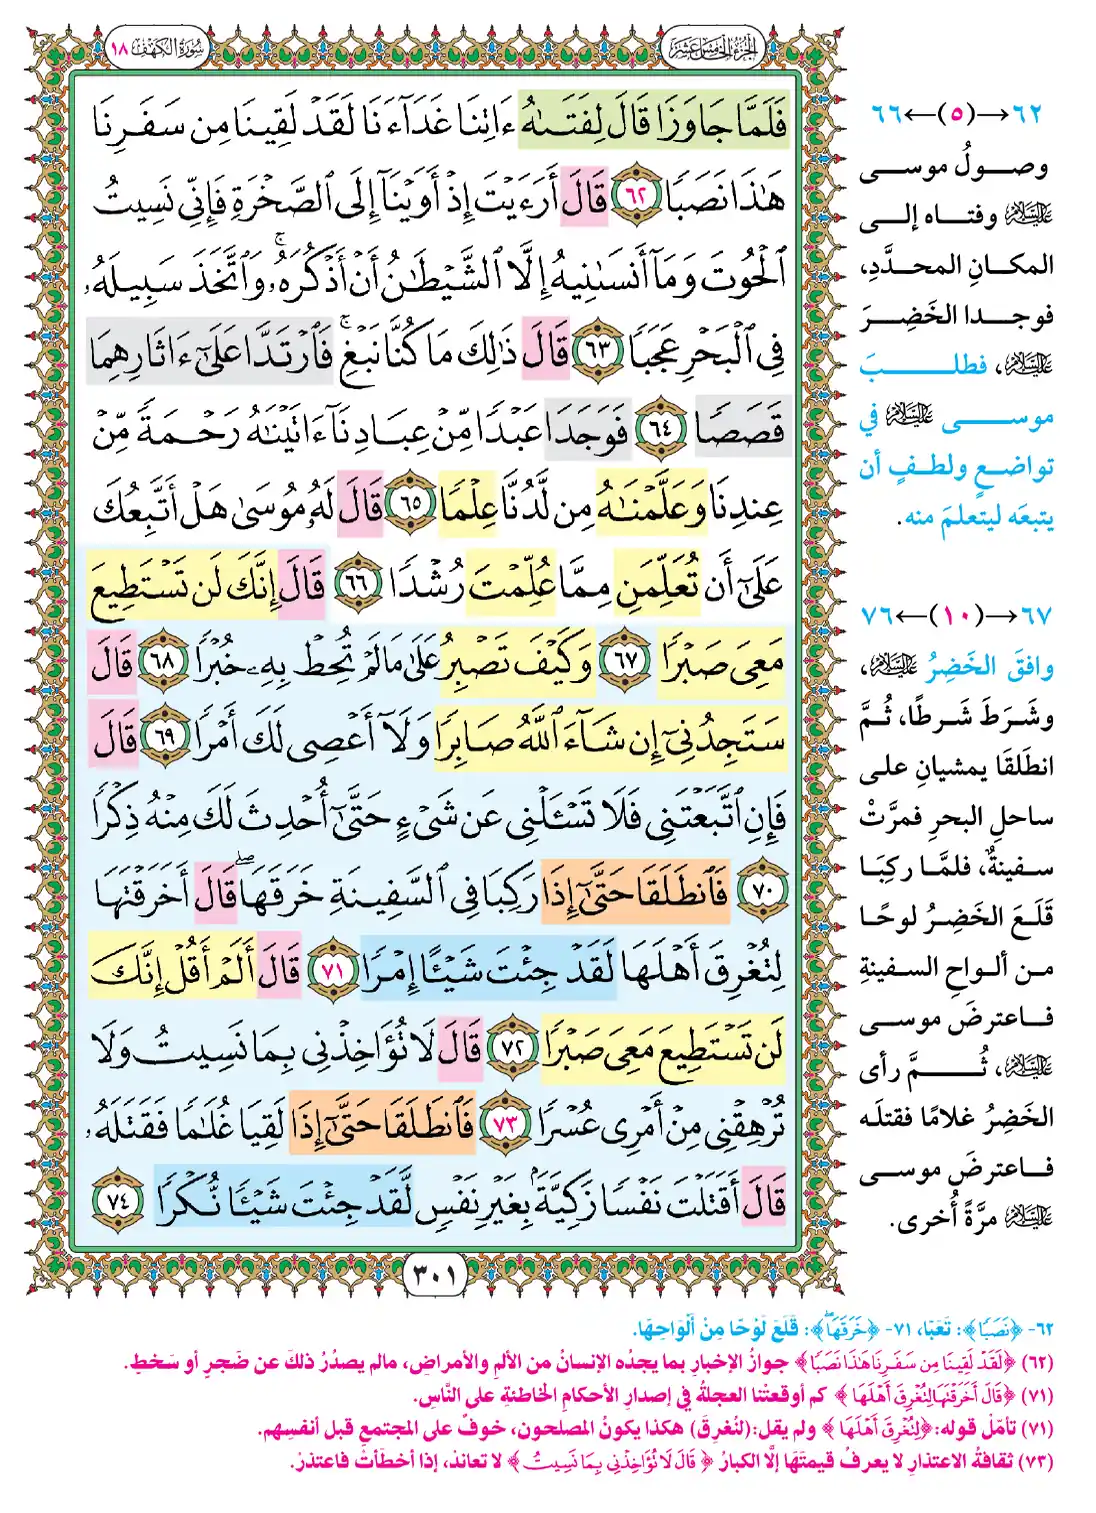 الجزء الخامس عشر
سورة الكهف ١٨
فَلَمَّا جَاوَزَا قَالَ لِفَتَىٰهُ ءَاتِنَا غَدَآءَنَا لَقَدۡ لَقِينَا مِن سَفَرِنَا
هَٰذَا نَصَبٗا ٦٢ قَالَ أَرَءَيۡتَ إِذۡ أَوَيۡنَآ إِلَى ٱلصَّخۡرَةِ فَإِنِّي نَسِيتُ
ٱلۡحُوتَ وَمَآ أَنسَىٰنِيهُ إِلَّا ٱلشَّيۡطَٰنُ أَنۡ أَذۡكُرَهُۥۚ وَٱتَّخَذَ سَبِيلَهُۥ
فِي ٱلۡبَحۡرِ عَجَبٗا ٦٣ قَالَ ذَٰلِكَ مَا كُنَّا نَبۡغِۚ فَٱرۡتَدَّا عَلَىٰٓ ءَاثَارِهِمَا
قَصَصٗا ٦٤ فَوَجَدَا عَبۡدٗا مِّنۡ عِبَادِنَآ ءَاتَيۡنَٰهُ رَحۡمَةٗ مِّنۡ
عِندِنَا وَعَلَّمۡنَٰهُ مِن لَّدُنَّا عِلۡمٗا ٦٥ قَالَ لَهُۥ مُوسَىٰ هَلۡ أَتَّبِعُكَ
عَلَىٰٓ أَن تُعَلِّمَنِ مِمَّا عُلِّمۡتَ رُشۡدٗا ٦٦ قَالَ إِنَّكَ لَن تَسۡتَطِيعَ
مَعِيَ صَبۡرٗا ٦٧ وَكَيۡفَ تَصۡبِرُ عَلَىٰ مَا لَمۡ تُحِطۡ بِهِۦ خُبۡرٗا ٦٨ قَالَ
سَتَجِدُنِيٓ إِن شَآءَ ٱللَّهُ صَابِرٗا وَلَآ أَعۡصِي لَكَ أَمۡرٗا ٦٩ قَالَ
فَإِنِ ٱتَّبَعۡتَنِي فَلَا تَسۡـَٔلۡنِي عَن شَيۡءٍ حَتَّىٰٓ أُحۡدِثَ لَكَ مِنۡهُ ذِكۡرٗا
٧٠ فَٱنطَلَقَا حَتَّىٰٓ إِذَا رَكِبَا فِي ٱلسَّفِينَةِ خَرَقَهَاۖ قَالَ أَخَرَقۡتَهَا
لِتُغۡرِقَ أَهۡلَهَا لَقَدۡ جِئۡتَ شَيۡـًٔا إِمۡرٗا ٧١ قَالَ أَلَمۡ أَقُلۡ إِنَّكَ
لَن تَسۡتَطِيعَ مَعِيَ صَبۡرٗا ٧٢ قَالَ لَا تُؤَاخِذۡنِي بِمَا نَسِيتُ وَلَا
تُرۡهِقۡنِي مِنۡ أَمۡرِي عُسۡرٗا ٧٣ فَٱنطَلَقَا حَتَّىٰٓ إِذَا لَقِيَا غُلَٰمٗا فَقَتَلَهُۥ
قَالَ أَقَتَلۡتَ نَفۡسٗا زَكِيَّةَۢ بِغَيۡرِ نَفۡسٖ لَّقَدۡ جِئۡتَ شَيۡـٔٗا نُّكۡرٗا ٧٤
٣٠١
٦٢→(٥)←٦٦
وصولُ موسى
عليه السلام وفتاه إلى
المكانِ المحدَّدِ،
فوجدا الخَضِرَ
عليه السلام، فطلبَ
موسى عليه السلام في
تواضعٍ ولطفٍ أن
يتبعَه ليتعلمَ منه.
٦٧→(١٠)←٧٦
وافقَ الخَضِرُ عليه السلام،
وشَرَطَ شَرطًا، ثُمَّ
انطَلقَا يمشيانِ على
ساحلِ البحرِ فمرَّتْ
سفينةٌ، فلمَّا ركِبَا
قَلَعَ الخَضِرُ لوحًا
من ألواحِ السفينةِ
فاعترضَ موسى
عليه السلام، ثُمَّ رأى
الخَضِرُ غلامًا فقتلَه
فاعترضَ موسى
عليه السلام مرَّةً أُخرى.
٦٢- ﴿نَصَبًا﴾: تَعَبًا، ٧١- ﴿خَرَقَهَاۖ﴾: قَلَعَ لَوْحًا مِنْ أَلْوَاحِهَا.
(٦٢) ﴿لَقَدْ لَقِينَا مِن سَفَرِنَا هَٰذَا نَصَبًا﴾ جوازُ الإخبارِ بما يجدُه الإنسانُ من الألمِ والأمراضِ، مالم يصدُرْ ذلكَ عن ضَجَرٍ أو سَخَطٍ.
(٧١) ﴿قَالَ أَخَرَقْتَهَا لِتُغْرِقَ أَهْلَهَا﴾ كم أوقعتْنا العجلةُ في إصدارِ الأحكامِ الخاطئةِ على النَّاسِ.
(٧١) تأمّلْ قوله: ﴿لِتُغْرِقَ أَهْلَهَا﴾ ولم يقل: (لتُغرِقَ) هكذا يكونُ المصلحون، خوفٌ على المجتمعِ قبل أنفسِهم.
(٧٣) ثقافةُ الاعتذارِ لا يعرفُ قيمتَهَا إلَّا الكبارُ ﴿قَالَ لَا تُؤَاخِذْنِي بِمَا نَسِيتُ﴾ لا تعاندْ، إذا أخطأتَ فاعتذرْ.